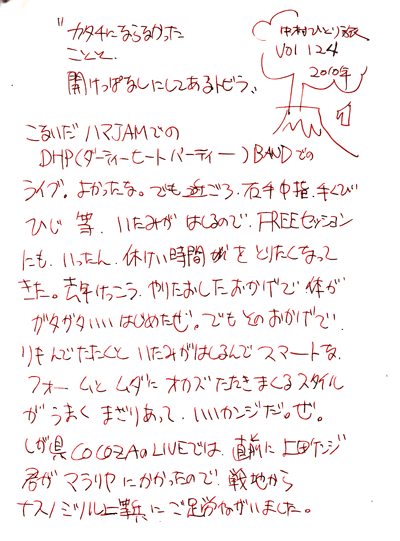 "カタチにならなかった
ことと、
開けっぱなしにしてあるトビラ"
中村ひとり旅
VOl 124
2010年
こないだ ハマJAMでの
DHP(ダーティーヒートパーティー)BANDでの
ライブ。よかったな。でも 近ごろ 右手中指、手くび
ひじ 等、いたみが はしるので、FREEセッション
にも、いったん、休けい時間 を とりたくなって
きた。去年けっこう、やりたおしたおかげで 体が
ガタガタいいはじめたぜ。でもそのおかげで、
リキんでたたくと いたみがはしるんで スマートな、
フォームと ムダに オカズたたきまくるスタイル
が うまく まざりあって、いいカンジだ。ぜ。
しが県 COCOZAのLIVEでは、直前に 上田ケンジ
君が マラリヤ にかかったので、戦地から
ナスノミツル二等兵に ご足労ねがいました。